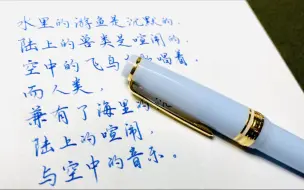 水里的游鱼是沉默的.
陆上的兽类是喧闹的.
空中的飞鸟 唱着
而人类,
兼有了海里的
陆上的喧闹,
与空中的音乐。